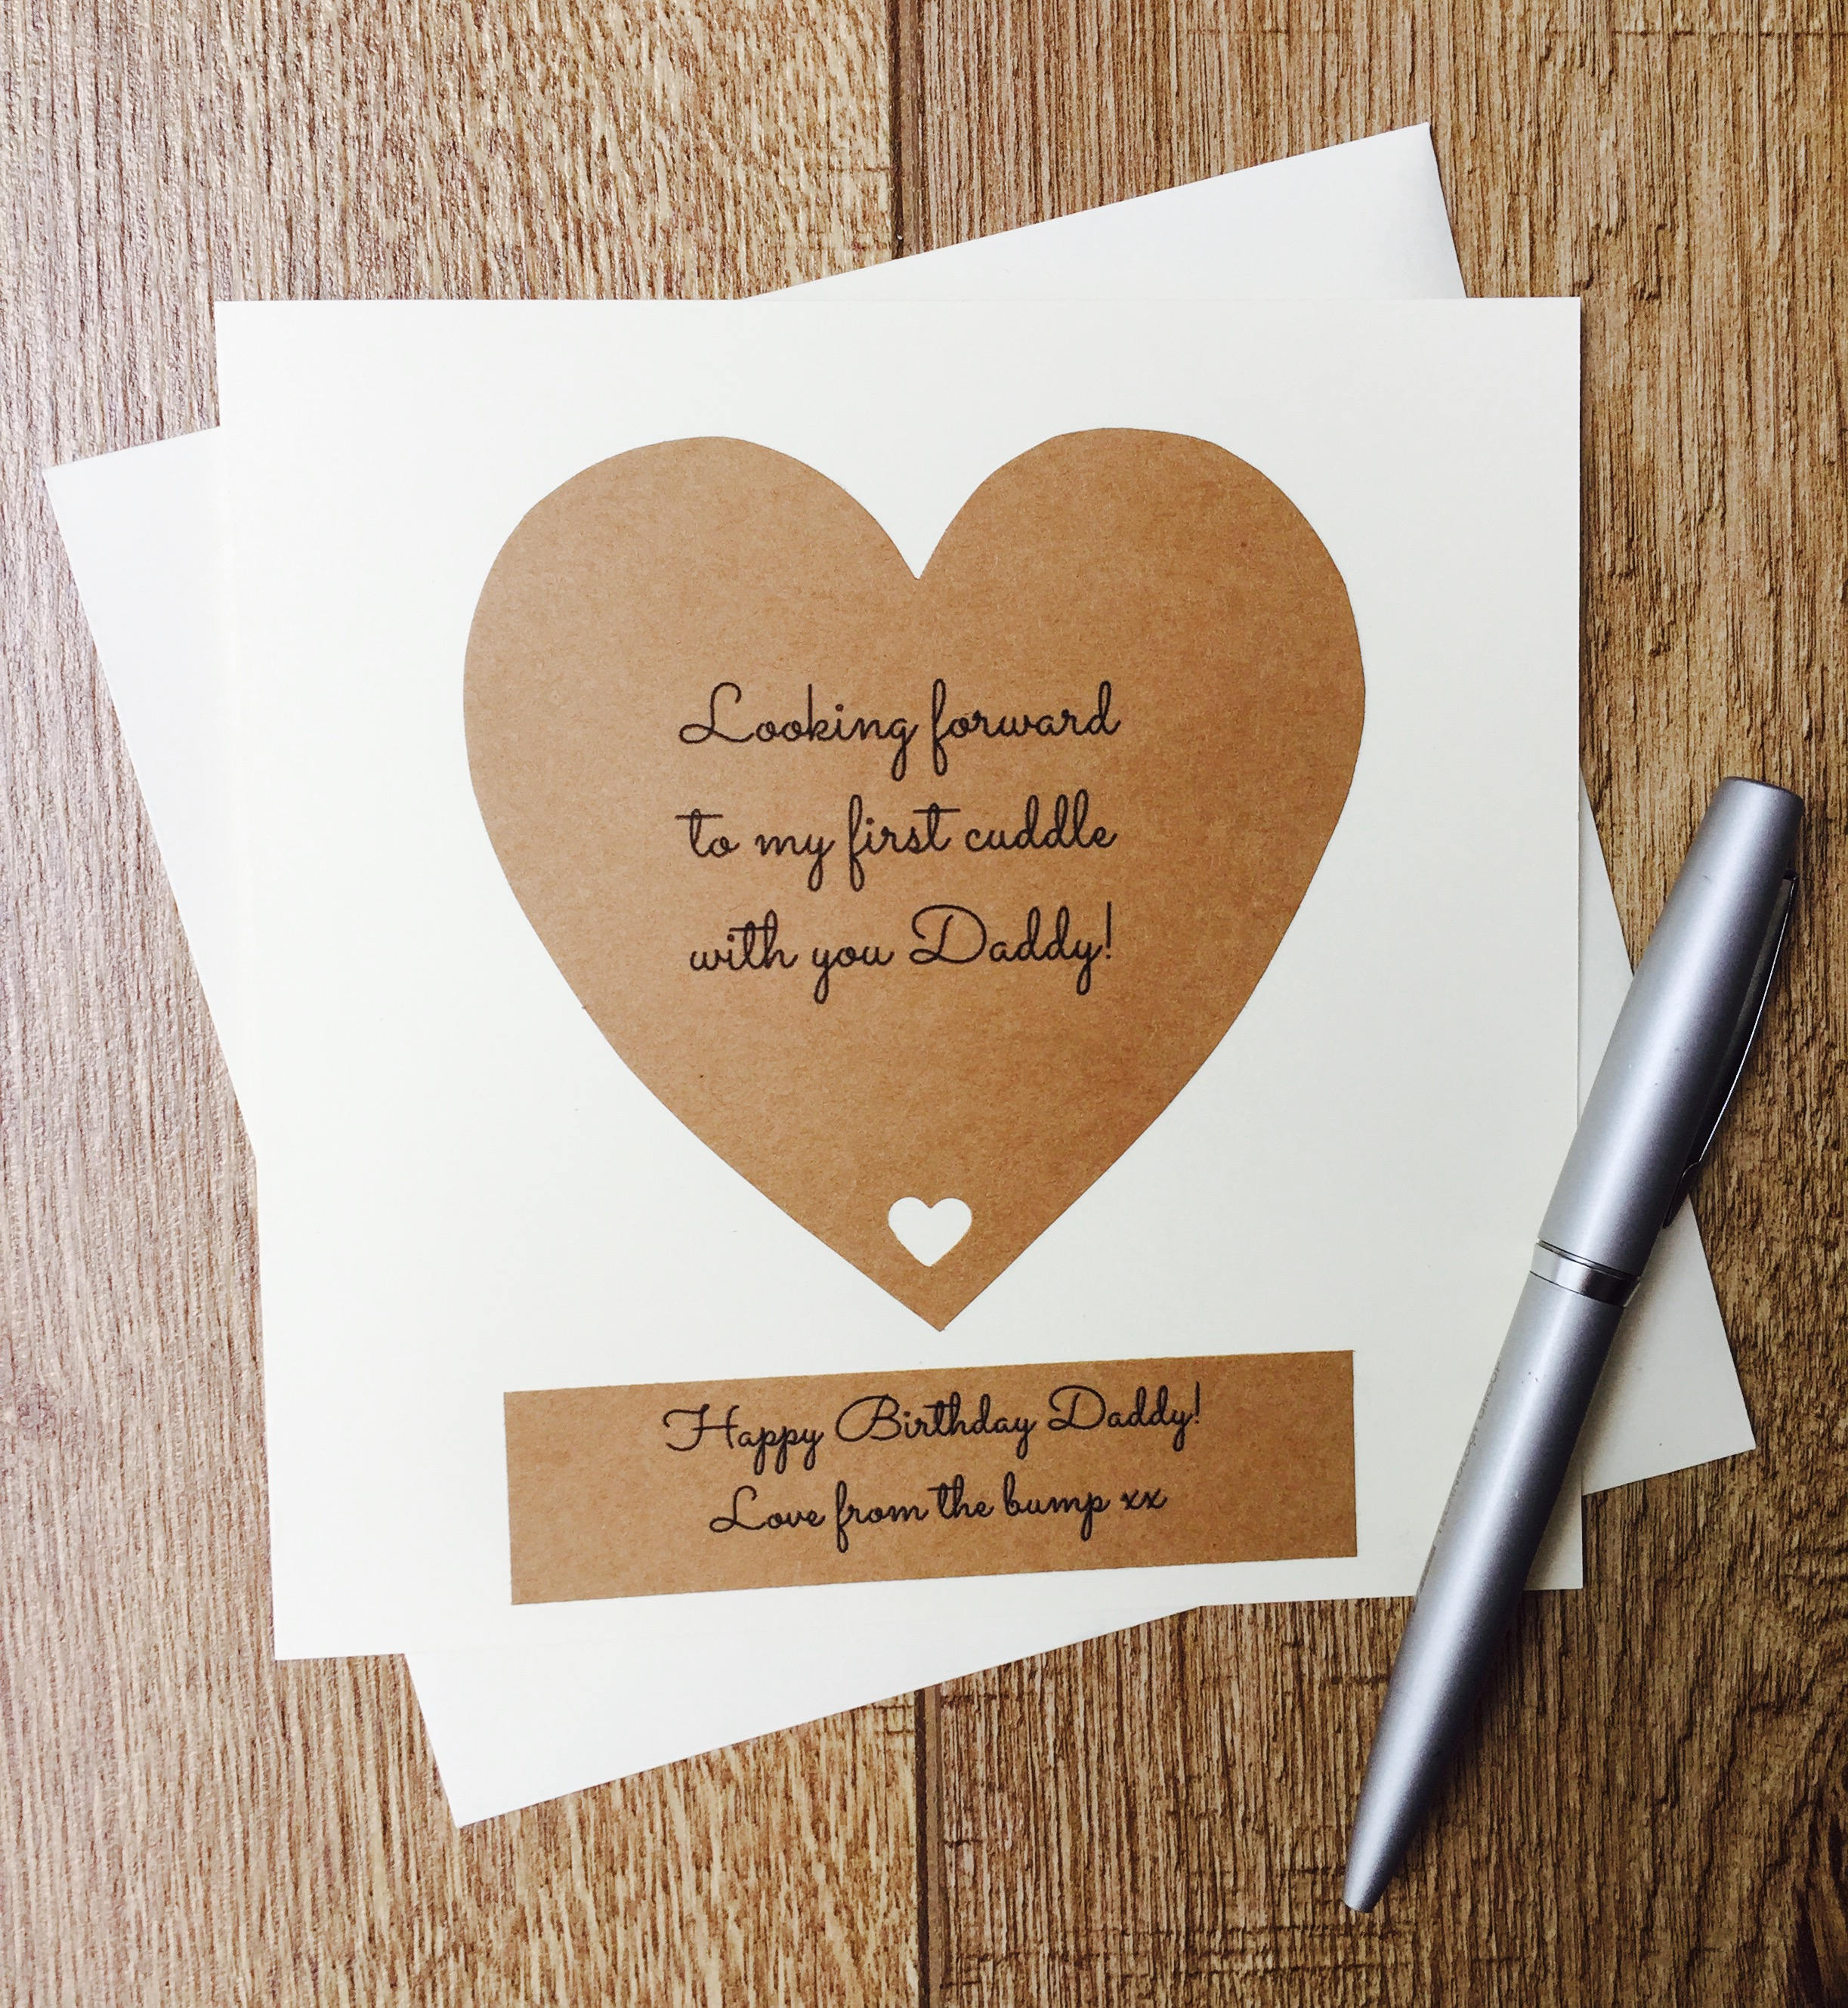 Looking forward
to my first cuddle
with you Daddy!
Happy Birthday Daddy!
Love from the bump xx